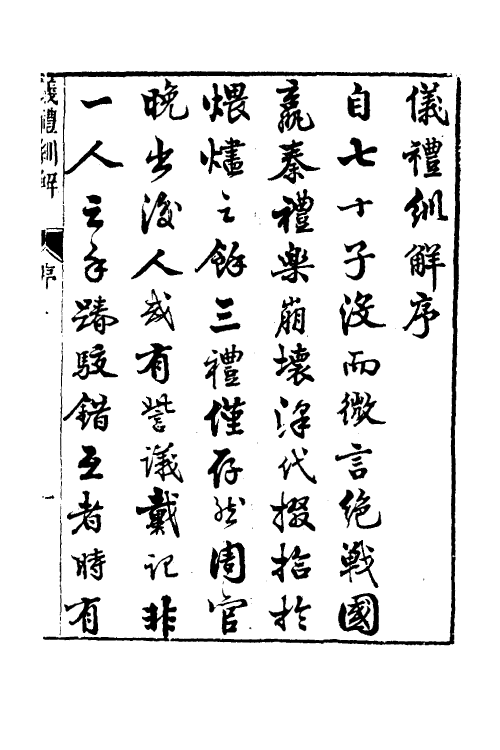 儀禮訓解序
自七十子沒而微言絶戰國
嬴秦禮樂崩壞漢代掇拾於
煨燼之餘三禮僅存然周官
晚出後人或有訾議戴記非
一人之手踳駁錯互者時有
儀禮訓解
序
一